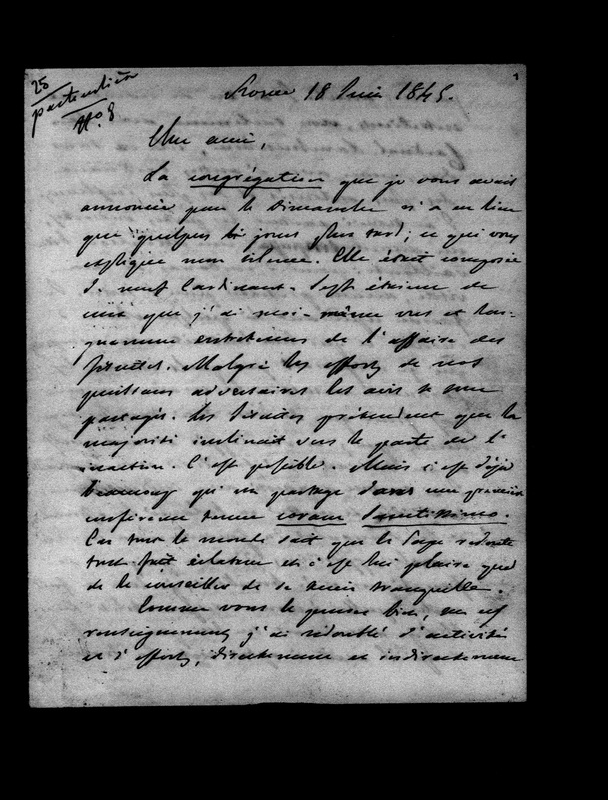 25
particulière
N° 8
Rome 18 Juin 1845.
Mon ami,
La congrégation que je vous avais
annoncée pour le Dimanche n'a eu lieu
que quelques jours plus tard; ce qui vous
explique mon silence. Elle était composée
de neuf Cardinaux. Sept étaient de
ceux que j'ai moi-même vus et lon-
guement entretenus de l'affaire des
Jésuites. Malgré les efforts de nos
puissans adversaires les avis se sont
partagés. Les Jésuites prétendent que la
majorité inclinait vers le parti de l'
inaction. C'est possible. Mais c'est déjà
beaucoup qu'un partage dans une première
conférence tenue coram Sanctissimo.
Car tout le monde sait que le Pape redoute
tout fait éclatant et c'est lui plaire que
de lui conseiller de se tenir tranquille.
Comme vous le pensez bien, sur ces
renseignemens j'ai redoublé d'activité
et d'efforts, directement et indirectement